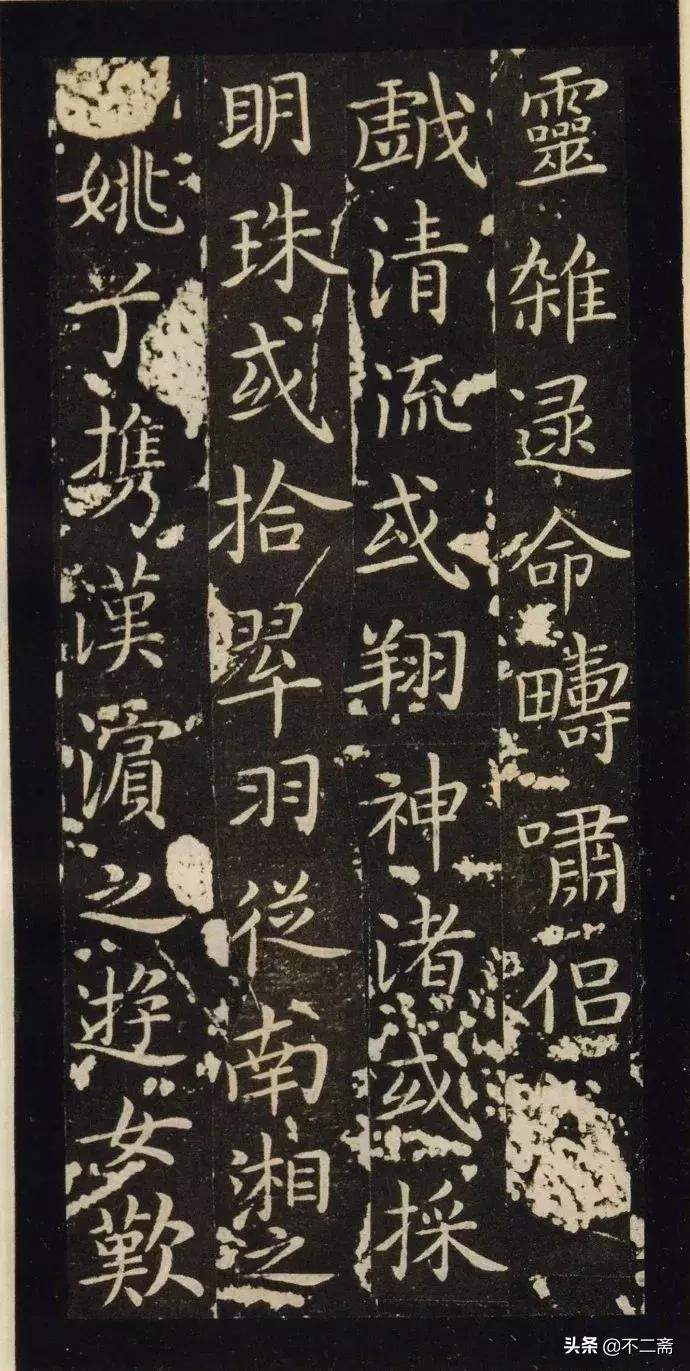 靈雜遝命疇嘯侶
戲清流或翔神渚或採
明珠或拾翠羽從南湘之
姚兮携漢濱之遊女歎
头条 @不二斋